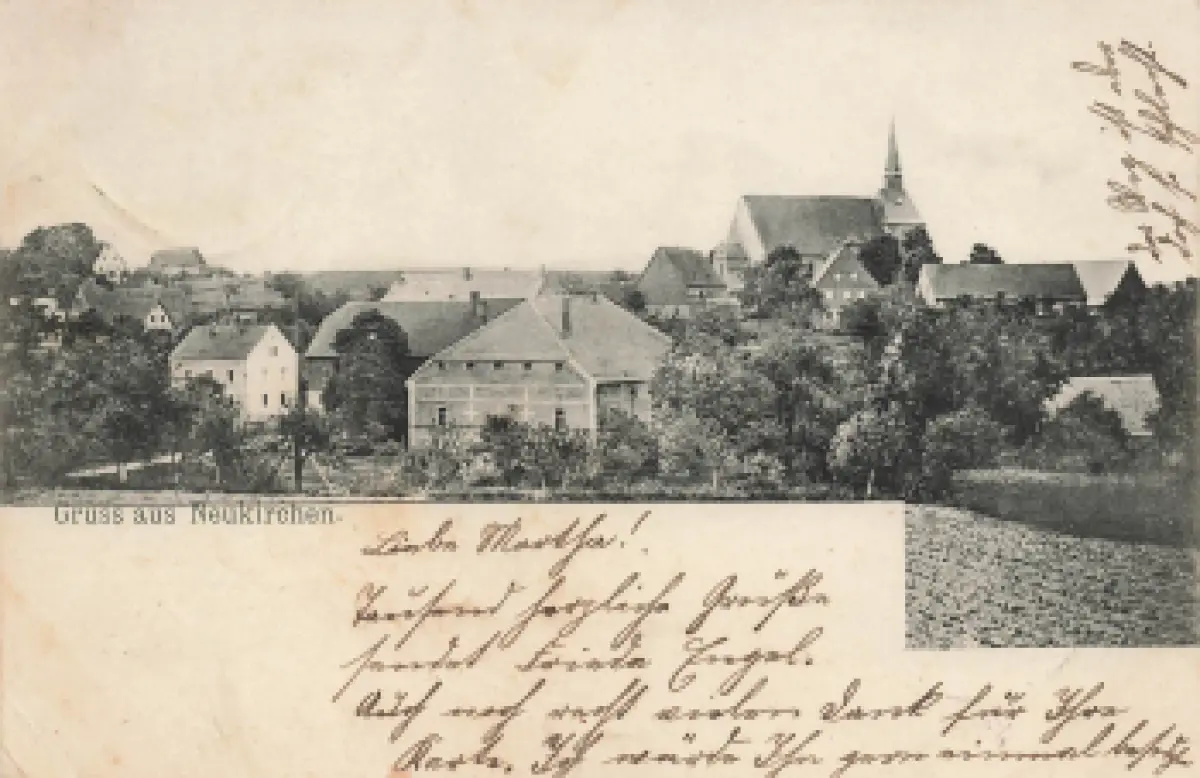 Gruss aus Neukirchen.
Liebe Martha!
Tausend herzliche Grüße
sendet Frieda Engel.
Auch noch recht vielen Dank für Ihre
Karte. Ich würde Ihn gern einmal